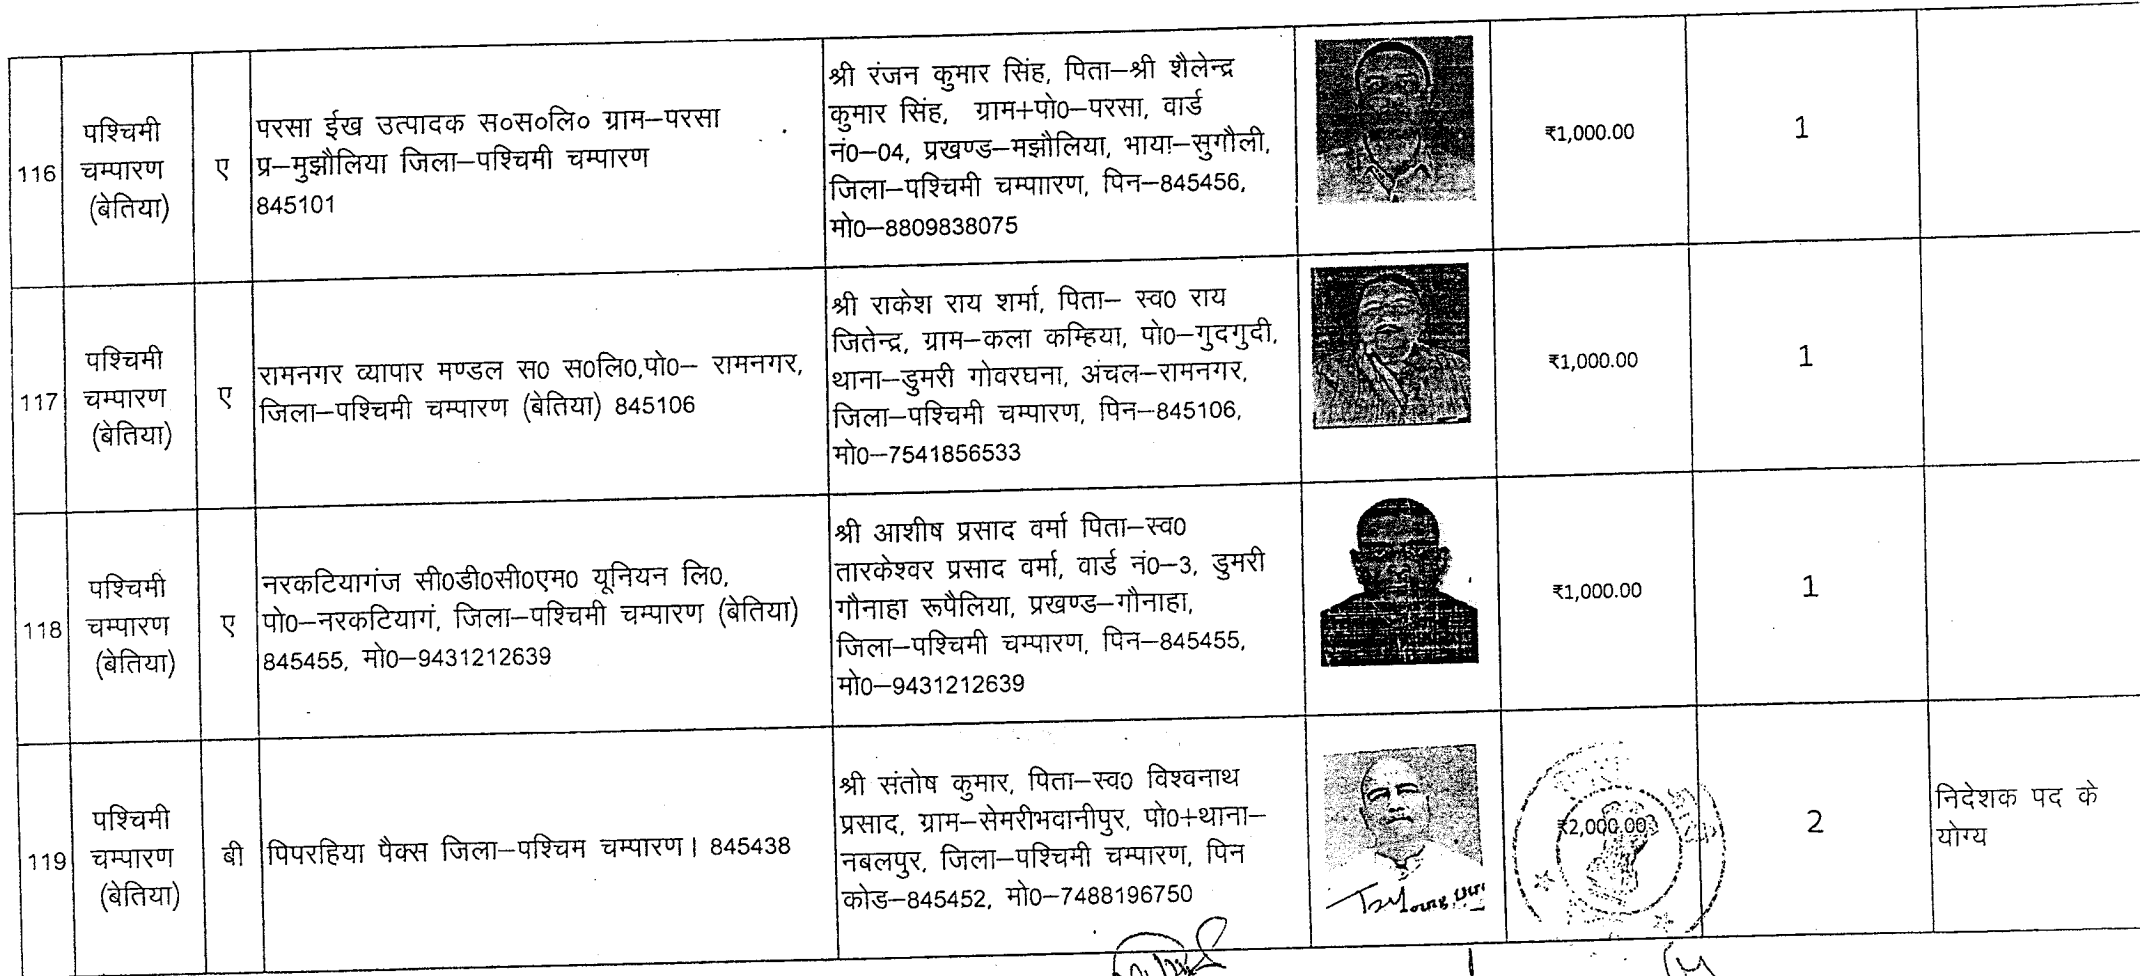 116
पश्चिमी
चम्पारण
(बेतिया)
ए
परसा ईख उत्पादक स०स०लि० ग्राम–परसा
प्र–मुझौलिया जिला–पश्चिमी चम्पारण
845101
श्री रंजन कुमार सिंह, पिता–श्री शैलेन्द्र
कुमार सिंह, ग्राम+पो0–परसा, वार्ड
नं0–04, प्रखण्ड–मझौलिया, भाया–सुगौली,
जिला–पश्चिमी चम्पाारण, पिन–845456,
मो0–8809838075
₹1,000.00
1
117
पश्चिमी
चम्पारण
(बेतिया)
ए
रामनगर व्यापार मण्डल स0 स0लि0,पो0– रामनगर,
जिला–पश्चिमी चम्पारण (बेतिया) 845106
श्री राकेश राय शर्मा, पिता– स्व0 राय
जितेन्द्र, ग्राम–कला कम्हिया, पो0–गुदगुदी,
थाना–डुमरी गोवरघना, अंचल–रामनगर,
जिला–पश्चिमी चम्पारण, पिन–845106,
मो0–7541856533
₹1,000.00
1
118
पश्चिमी
चम्पारण
(बेतिया)
ए
नरकटियागंज सी0डी0सी0एम0 यूनियन लि0,
पो0–नरकटियागं, जिला–पश्चिमी चम्पारण (बेतिया)
845455, मो0–9431212639
श्री आशीष प्रसाद वर्मा पिता–स्व0
तारकेश्वर प्रसाद वर्मा, वार्ड नं0–3, डुमरी
गौनाहा रूपैलिया, प्रखण्ड–गौनाहा,
जिला–पश्चिमी चम्पारण, पिन–845455,
मो0–9431212639
₹1,000.00
1
119
पश्चिमी
चम्पारण
(बेतिया)
बी
पिपरहिया पैक्स जिला–पश्चिम चम्पारण। 845438
श्री संतोष कुमार, पिता–स्व0 विश्वनाथ
प्रसाद, ग्राम–सेमरीभवानीपुर, पो0+थाना–
नबलपुर, जिला–पश्चिमी चम्पारण, पिन
कोड–845452, मो0–7488196750
₹2,000.00
2
निदेशक पद के
योग्य